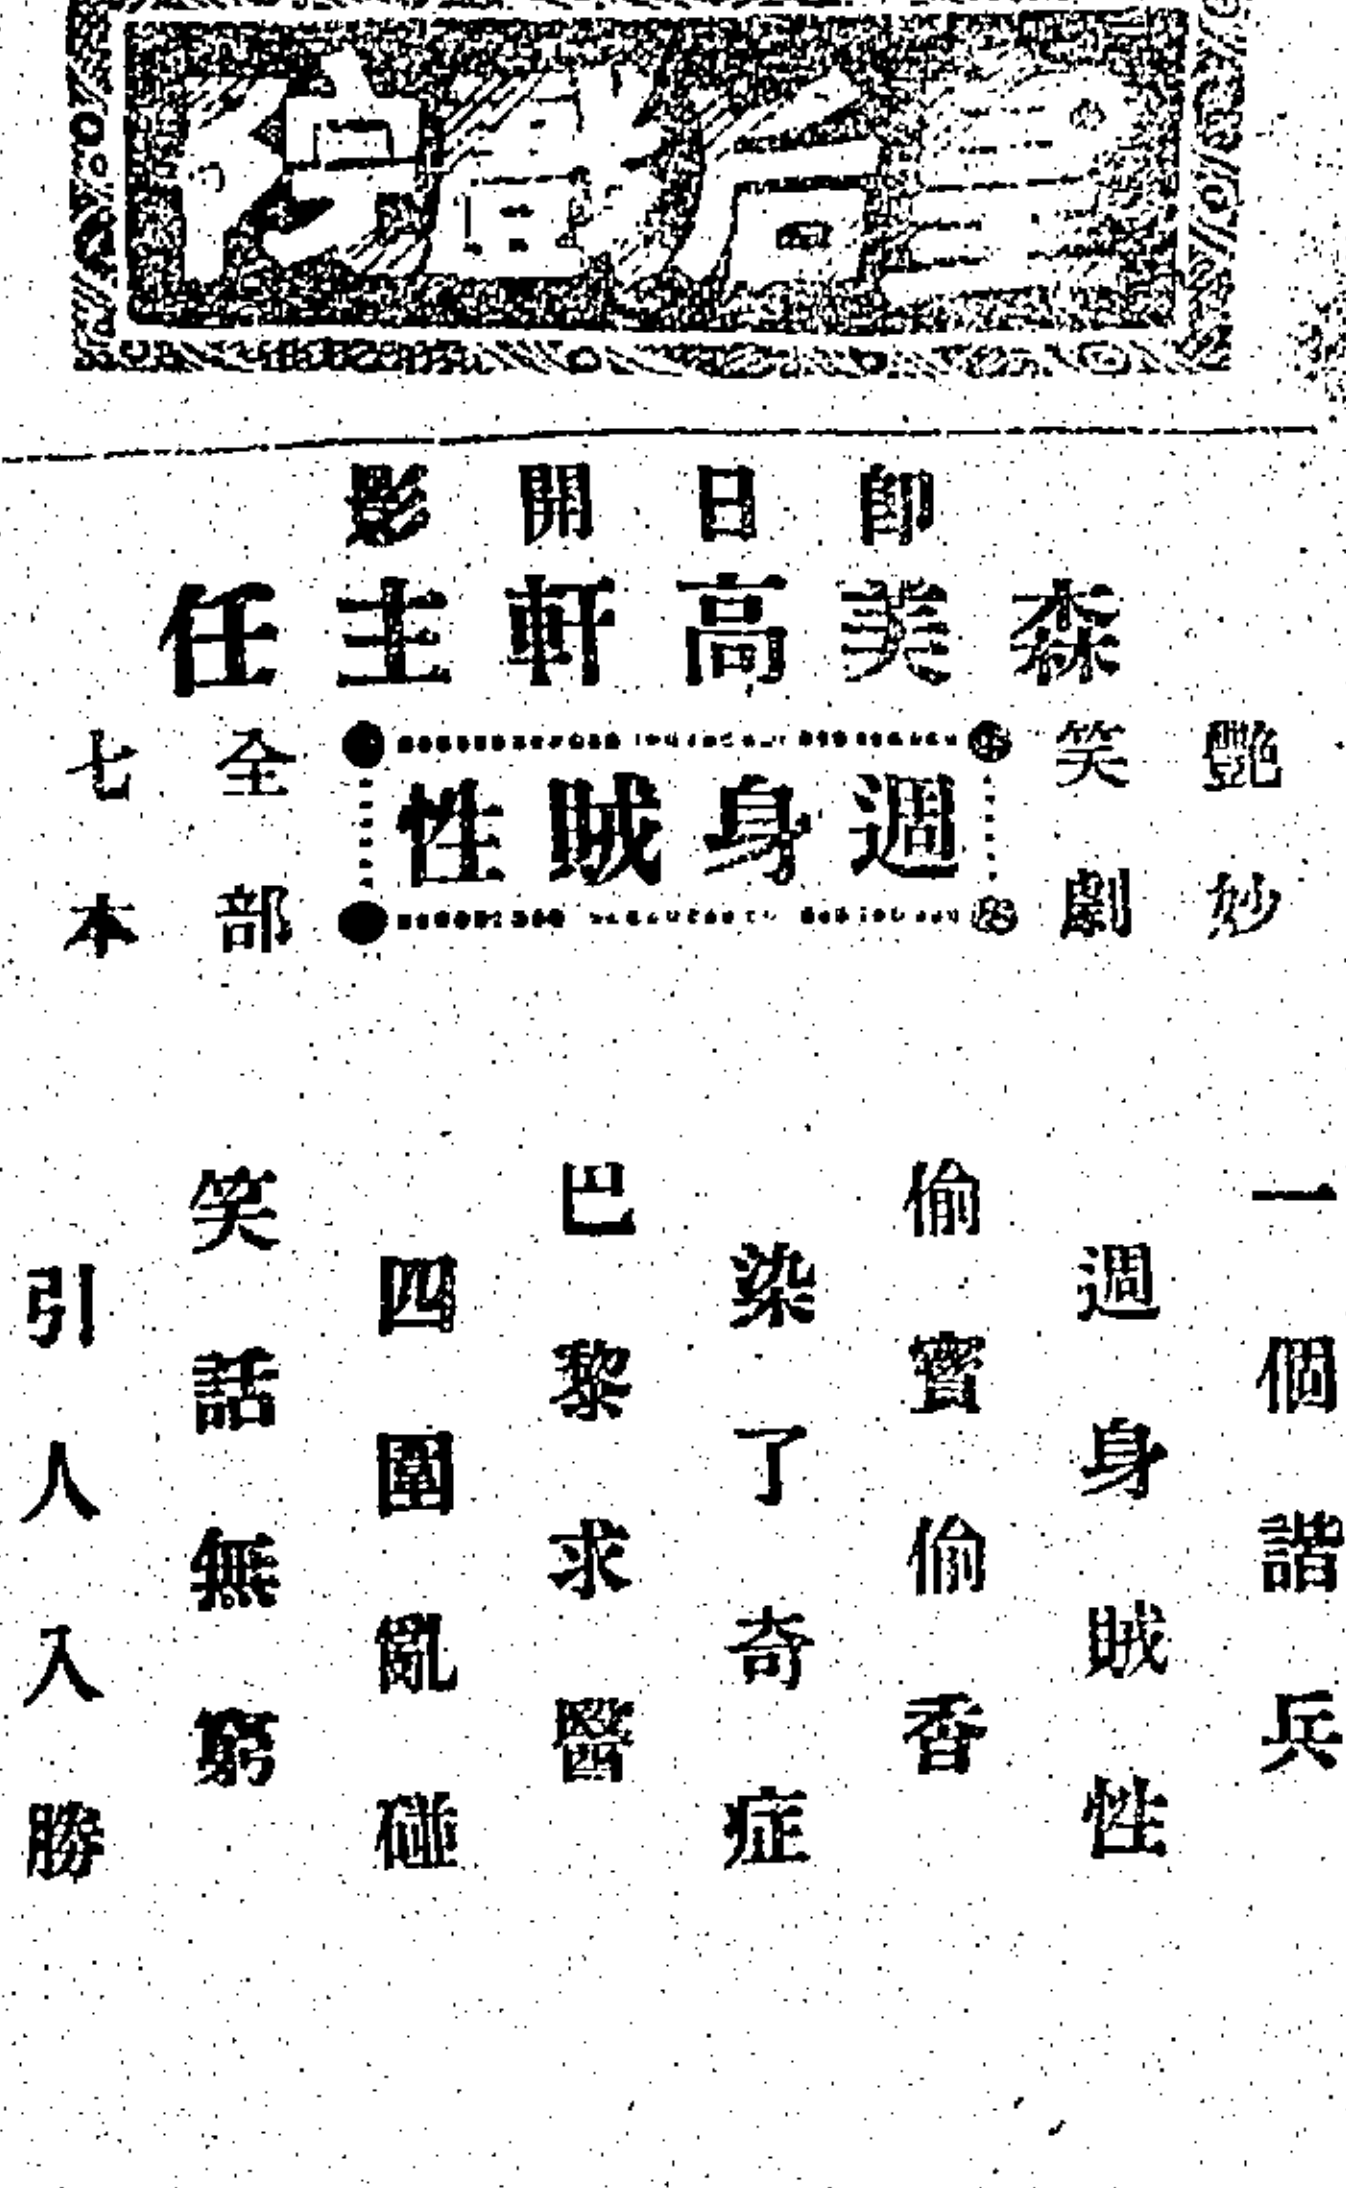 皇后戲院
即日開影
森美高軒主任
艷妙
笑劇
週身賊性
全部
七本
一個諧兵
週身賊性
偷寶偷香
染了奇症
巴黎求醫
四圍亂碰
笑話無窮
引人入勝